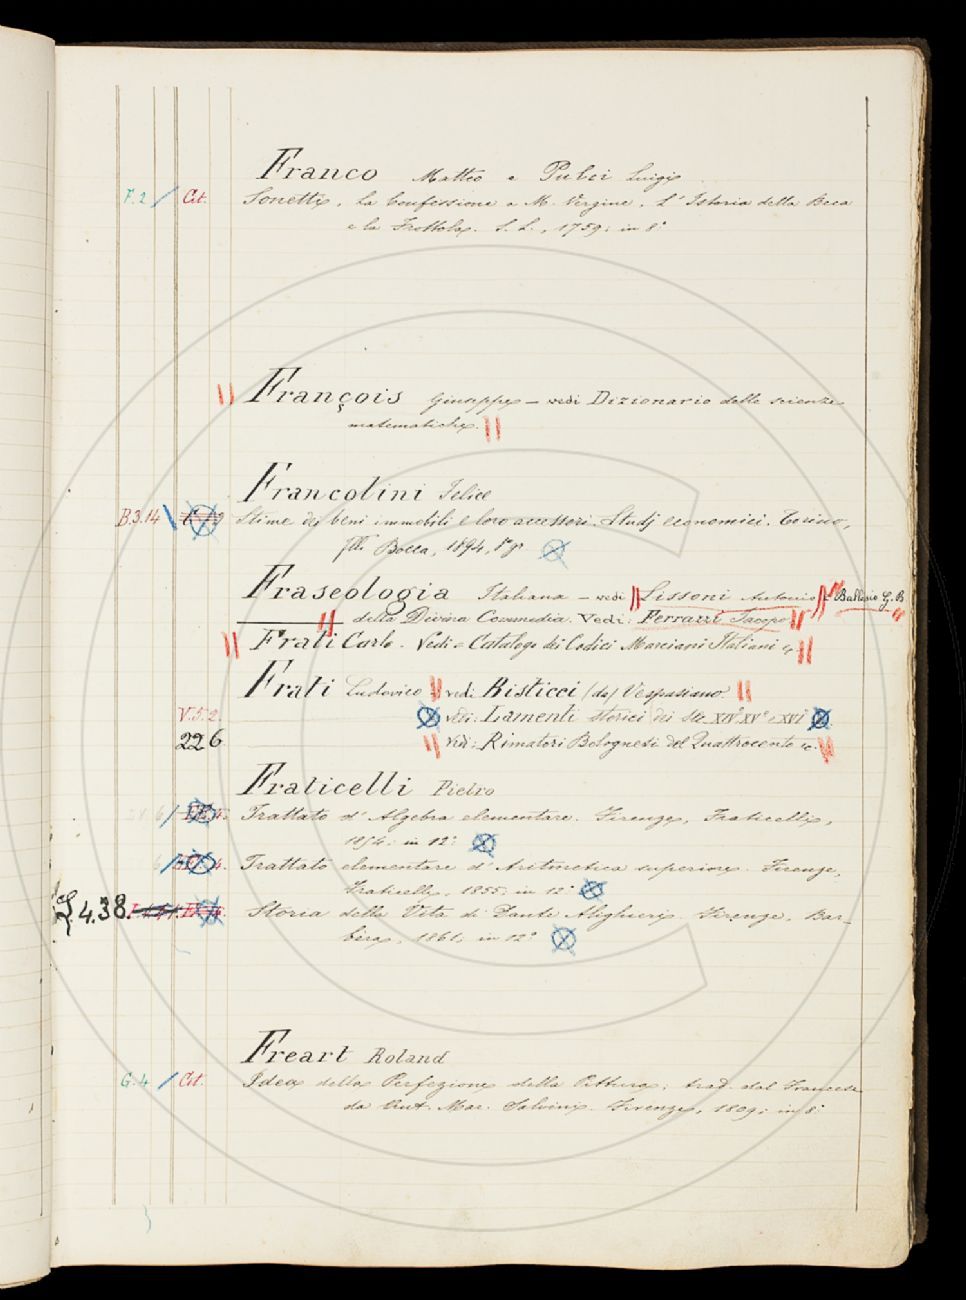 Franco Matteo e Pulci Luigi
F.2 / Cit. Sonetti, la Confessione a M. Vergine, L'Istoria della Beca
e la Frottola. S. L., 1759; in 8°
François Giuseppe — vedi Dizionario delle scienze
matematiche.
Francolini Felice
B.3.14 Stime dei beni immobili e loro accessori. Studj economici. Torino,
flli Bocca, 1894, 8° gr.
Fraseologia Italiana — vedi Lissoni Antonio e Ballesio G. B.
della Divina Commedia. Vedi: Ferrazzi Jacopo
Frati Carlo. Vedi Catalogo dei Codici Marciani Italiani
Frati Ludovico — vedi Bisticci (da) Vespasiano
V.5.2. vedi: Lamenti storici dei Sec. XIV° XV° e XVI°
226 vedi: Rimatori Bolognesi del Quattrocento
Fraticelli Pietro
Trattato d'Algebra elementare. Firenze, Fraticelli,
1854; in 12°
Trattato elementare d'Aritmetica superiore. Firenze,
Fraticelli, 1855; in 12°
4.38. Storia della Vita di Dante Alighieri. Firenze, Bar-
bèra, 1861; in 12°
Freart Roland
G.4 / Cit. Idea della Perfezione della Pittura; trad. dal Francese
da Ant. Mar. Salvini. Firenze, 1809; in 8°